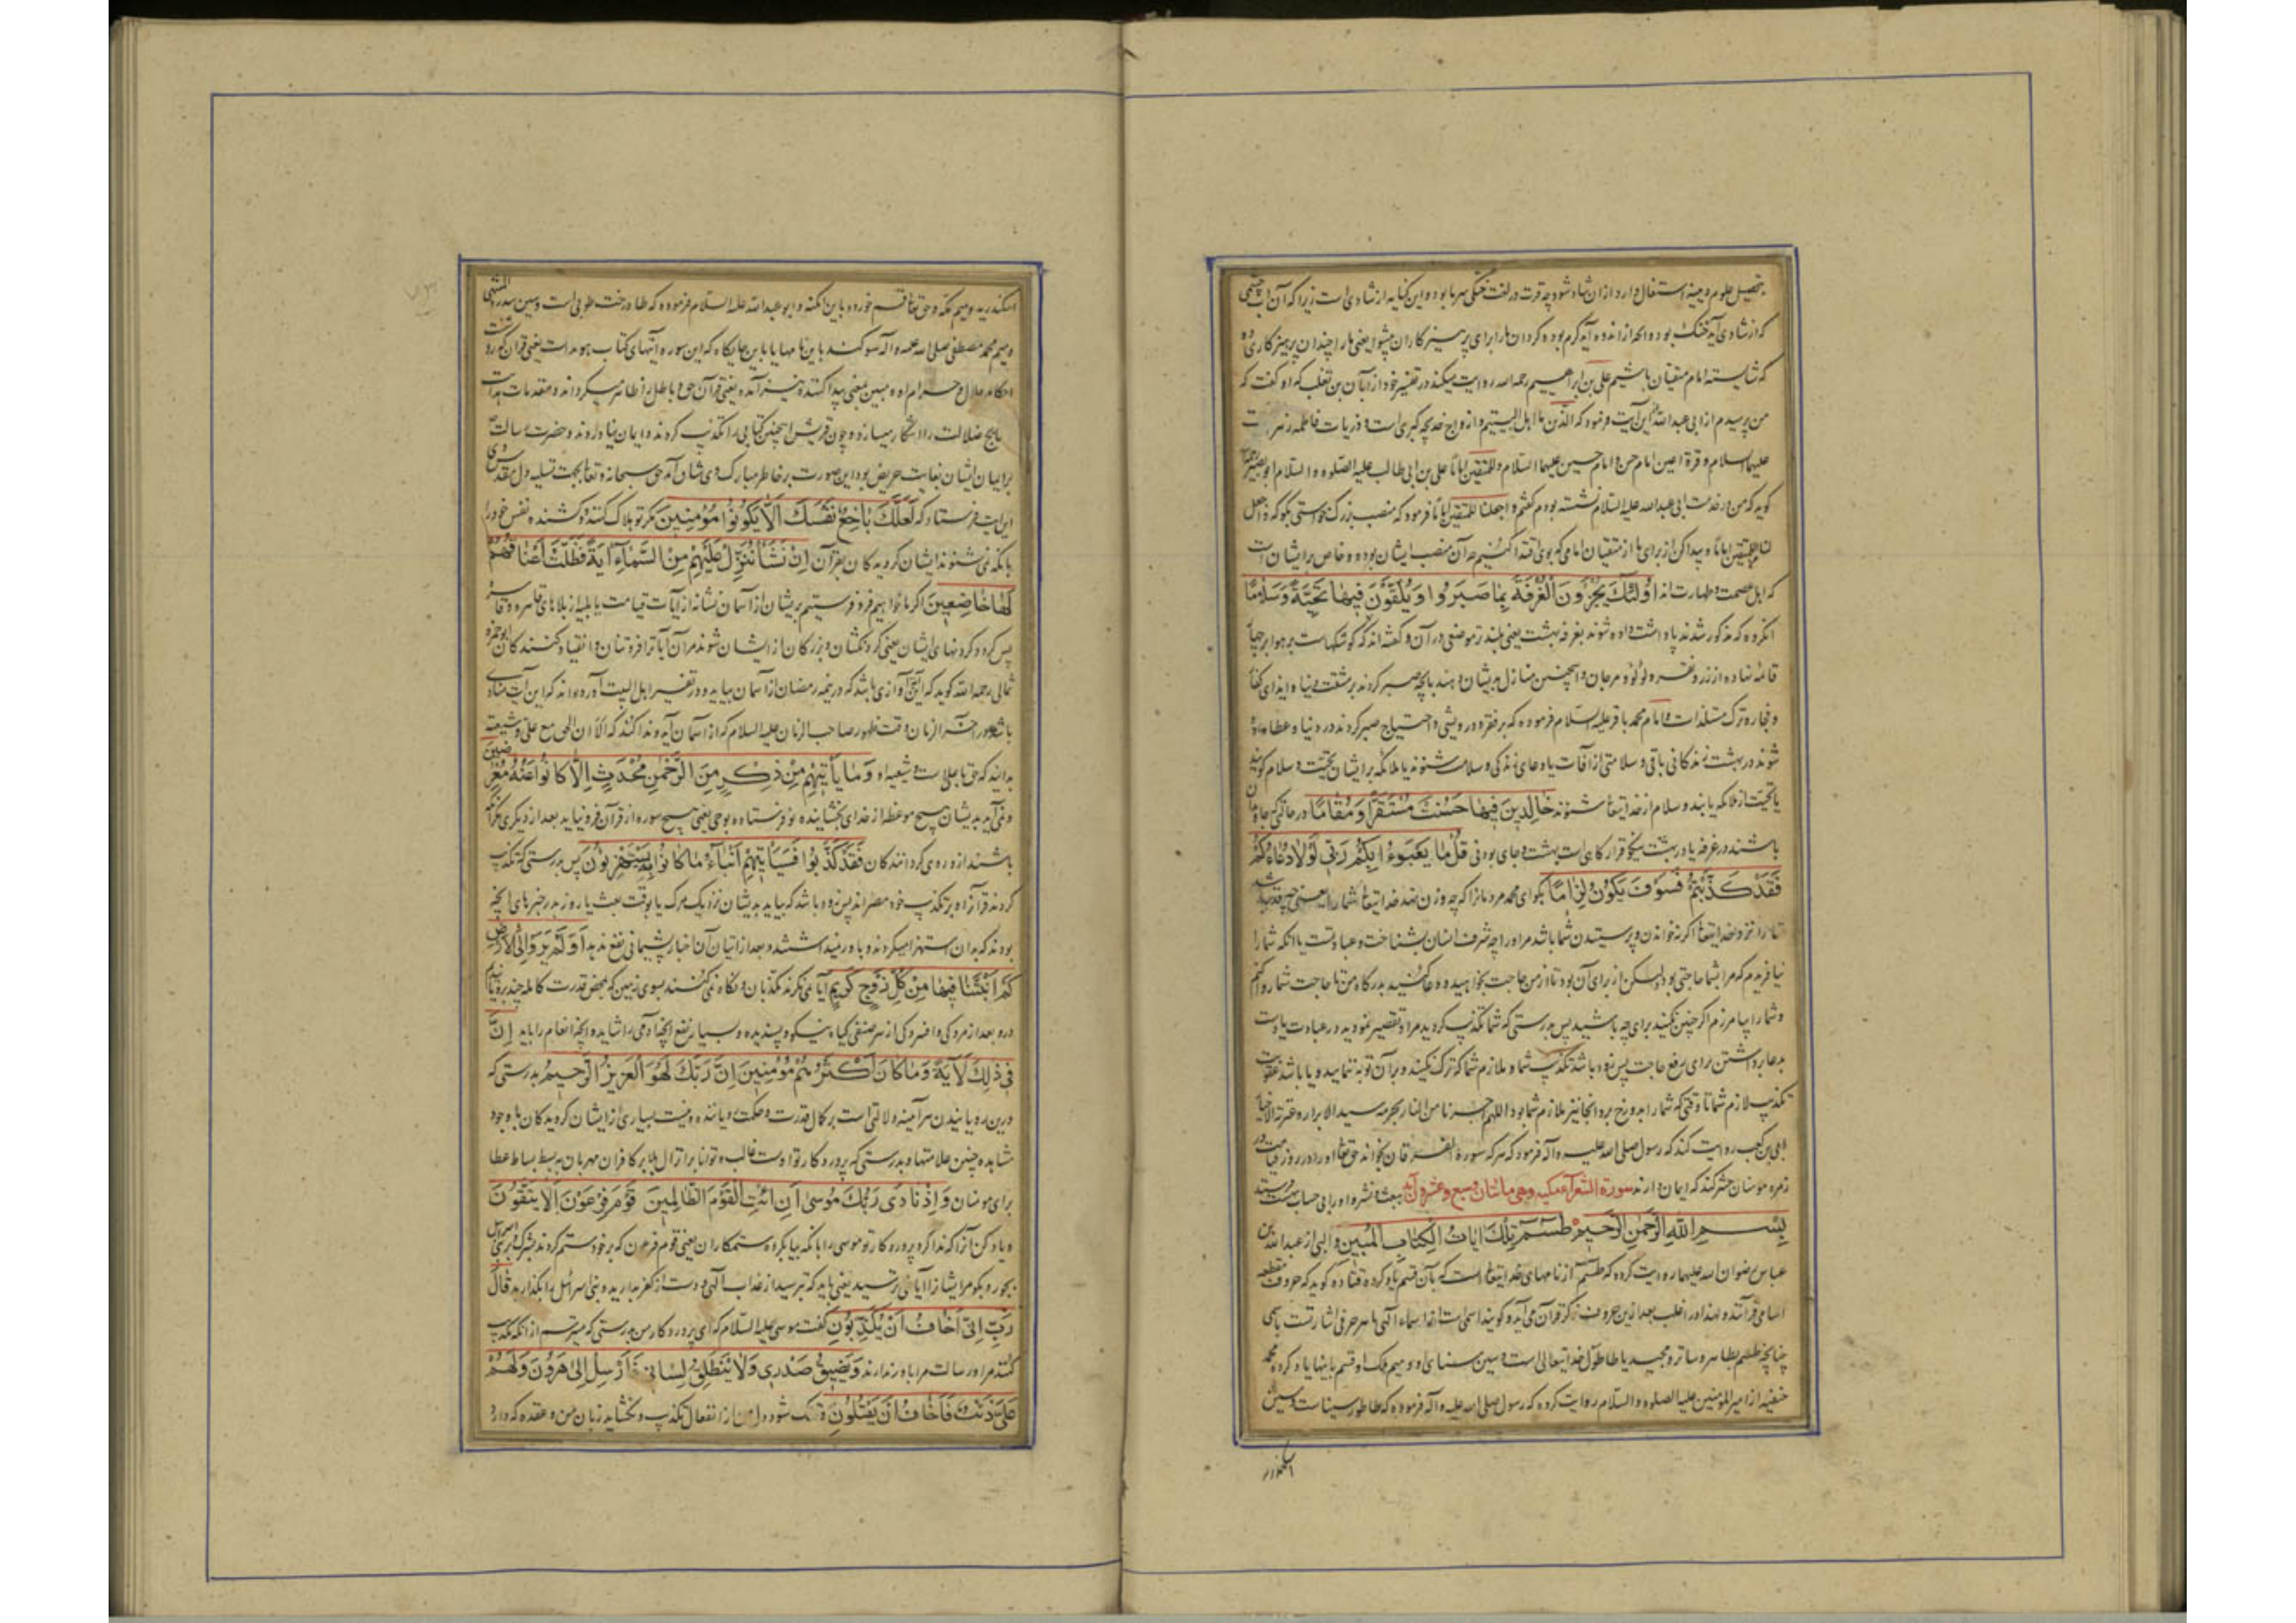 بتحصیل علوم دینیه استغال دارد ازان شاد شود چه قرت در لغت خنکی سرما بود و این کنایه از شادی است زیرا که آن اب چشمی
که از شادی آید خنک بود و انچه از اندوه آید گرم بود و کردان مارا برای پرهیزکاران پیشوا یعنی مارا چندان پرهیزکاری ده
که شایسته امام متقیان باشیم علی بن ابراهیم رحمه الله روایت میکند در تفسیر خود از ابان بن تغلب که او گفت که
من پرسیدم از ابی عبد الله این آیت فرمود که الذین ما اهل البیتیم و ازواج خدیجه کبری است و ذریات فاطمه زهرا
علیها السلام و قرة اعین امام حسن و امام حسین علیهما السلام و للمتقین اماما علی بن ابی طالب علیه الصلوه و السلام ابو بصیر
گوید که من در خدمت ابی عبد الله علیه السلام نشسته بودم گفتم و اجعلنا للمتقین اماما فرمود که منصب بزرگ خواستی بگو که واجعل
لنا للمتقین اماما و پیدا کن از برای ما از متقیان امامی که بوی اقتدا کنیم چه آن منصب ایشان بوده و خاص برایشان است
که اهل عصمت و طهارت اند اُولٰئِكَ يُجْزَوْنَ الْغُرْفَةَ بِمَا صَبَرُوا وَيُلَقَّوْنَ فِيهَا تَحِيَّةً وَسَلَامًا
انکروه که مذکور شدند پاداشت داده شوند بغرفه بهشت یعنی بلندتر موضعی در آن و گفته اند که کوشکهاست بر هوا بر چهار
قائمه نهاده از زر و نقره و لؤلؤ و مرجان و اینچنین منازل بدیشان دهند بانچه صبر کردند بر مشقت دنیا و ایذای کفار
و فجار و ترک مستلذات و امام محمد باقر علیه السلام فرموده که بر فقر و درویشی و احتیاج صبر کردند در دنیا و عطا داده
شوند در بهشت زندگانی باقی و سلامتی از آفات یا دعای زندگی و سلامت شنوند یا ملائکه برایشان تحیت و سلام گویند
یا تحیت از ملائکه یابند و سلام از خدایتعا شنوند خَالِدِينَ فِيهَا حَسُنَتْ مُسْتَقَرًّا وَمُقَامًا در حالتی که جاودان
باشند در غرفه یا در بهشت نیکو قرارگاهی است بهشت و جای بودنی قُلْ مَا يَعْبَؤُا بِكُمْ رَبِّي لَوْلَا دُعَاؤُكُمْ
فَقَدْ كَذَّبْتُمْ فَسَوْفَ يَكُونُ لِزَامًا بگو ای محمد مردمانرا که چه وزن نهد خدایتعا شمارا یعنی چه قدر باشد
شما را نزد خدایتعا اگر نه خواندن و پرستیدن شما باشد مر او را چه شرف انسان بشناخت و عبادتست یا انکه شما را
نیافریدم که مرا بشما حاجتی بود لیکن از برای آن بود تا از من حاجت بخواهید و دعا کنید بدرگاه من تا حاجت شما روا کنم
و شما را بیامرزم اگر چنین نکنید برای چه باشید پس بدرستی که شما تکذیب کردید مرا و تقصیر نمودید در عبادت یا دست
بدعا برداشتن برای رفع حاجت پس زود باشد تکذیب شما و ملازم شما که ترک نکنید و بر آن توبه ننمایید و یا باشد عقوبت
تکذیب لازم شما تا وقتی که شما را بدوزخ برد و انجا نیز ملازم شما بود اللهم اجرنا من النار بحرمه سید الابرار و عترته الاخیار
ابی بن کعب روایت کند که رسول صلی الله علیه و آله فرمود که هر که سوره الفرقان بخواند حق تعا او را در روز قیامت در
زمره مومنان حشر کند که ایمان دارند سورة الشعرا مکیه و هی مائتان و سبع و عشرون آیه ببعث و نشر و او را بی حساب ببهشت فرستد
بِسْمِ اللهِ الرَّحْمٰنِ الرَّحِيمِ طسم تِلْكَ اٰيَاتُ الْكِتَابِ الْمُبِينِ والبی از عبد الله بن
عباس رضوان الله علیهما روایت کرده که طسم از نامهای خدایتعا است که بآن قسم یاد کرده قتاده گوید که حروف مقطعه
اسامی قرآنند و لهذا در اغلب بعد ازین حروف ذکر قرآن می آید و گویند اسمی است از اسماء آلهی یا هر حرفی اشارتست باسمی
چنانچه طسم بطاهر و ساتر و مجید یا طا طول خدایتعالی است و سین سنای او و میم ملک او قسم باینها یاد کرده محمد
حنفیه از امیر المومنین علیه الصلوه و السلام روایت کرده که رسول صلی الله علیه و آله فرموده که طا طور سیناست و سین
اسکندریه
اسکندریه و میم مکه و حق تعا قسم خورد باین امکنه و ابو عبد الله علیه السلام فرموده که طا درخت طوبی است و سین سدرة المنتهی
و میم محمد مصطفی صلی الله علیه و آله سوکند باین نامها یا باین جایگاه که این سوره آیتهای کتاب هویداست یعنی قران که روشنست
احکام حلال و حرام او و مبین بمعنی پیدا کننده نیز آمده یعنی قرآن حق و باطل را ظاهر میگرداند و مقدمات هدایت
نتایج ضلالت را آشکار میسازد و چون قریش اینچنین کتابی را تکذیب کردند و ایمان نیاوردند و حضرت رسالت
بر ایمان ایشان بغایت حریص بود این صورت بر خاطر مبارک وی شان آمد حق سبحانه و تعا بجهت تسلیه دل مقدس وی
این ایت فرستاد که لَعَلَّكَ بَاخِعٌ نَفْسَكَ اَلَّا يَكُونُوا مُؤْمِنِينَ مگر تو هلاک کننده و کشنده نفس خود را
بانکه نمی شنوند ایشان گرویدکان بقرآن اِنْ نَشَأْ نُنَزِّلْ عَلَيْهِمْ مِنَ السَّمَاءِ اٰيَةً فَظَلَّتْ اَعْنَاقُهُمْ
لَهَا خَاضِعِينَ اگر ما خواهیم فرو فرستیم بریشان از آسمان نشانه از آیات قیامت یا بلیه از بلاهای قاهره و قاسره
پس گردد گردنهای ایشان یعنی گردنکشان و بزرگان از ایشان شوند مر آن آیات را فروتنان و انقیاد کنندگان ابو حمزه
ثمالی رحمه الله گوید که این آیت آوازی باشد که در نیمه رمضان از آسمان بیاید و در تفسیر اهل البیت آورده اند که این آیت منادی
باشد در آخر الزمان وقت ظهور صاحب الزمان علیه السلام که از آسمان آید و ندا کند که الا ان الحق مع علی و شیعته
بدانید که حق با علی است و شیعه او وَمَا يَأْتِيهِمْ مِنْ ذِكْرٍ مِنَ الرَّحْمٰنِ مُحْدَثٍ اِلَّا كَانُوا عَنْهُ مُعْرِضِينَ
و نمی آید بدیشان هیچ موعظه از خدای بخشاینده نو فرستاده بوحی یعنی هیچ سوره از قرآن فرو نیاید بعد از دیگری مگر انکه
باشند ازو روی گردانندگان فَقَدْ كَذَّبُوا فَسَيَأْتِيهِمْ اَنْبَاءُ مَا كَانُوا بِهِ يَسْتَهْزِؤُنَ پس بدرستی که تکذیب
کردند قرآن را و بر تکذیب خود مصراند پس زود باشد که بیاید بدیشان نزدیک مرگ یا بوقت بعث یا روز بدر خبرهای انچه
بودند که بدان استهزا میکردند و باور نمیداشتند و بعد از اتیان آن اخبار پشیمانی نفع ندهد اَوَلَمْ يَرَوْا اِلَى الْاَرْضِ
كَمْ اَنْبَتْنَا فِيهَا مِنْ كُلِّ زَوْجٍ كَرِيمٍ آیا نمی نگرند مکذبان و نگاه نمی کنند بسوی زمین که بمحض قدرت کامله چند برویانیدیم
درو بعد از مردگی و افسردگی از هر صنفی گیاه نیکو و پسندیده و بسیار نفع انچه ادمی را شاید و انچه انعام را باید اِنَّ
فِي ذٰلِكَ لَاٰيَةً وَمَا كَانَ اَكْثَرُهُمْ مُؤْمِنِينَ اِنَّ رَبَّكَ لَهُوَ الْعَزِيزُ الرَّحِيمُ بدرستی که
درین رویانیدن هر آینه دلالتی است بر کمال قدرت و حکمت رویاننده و نیست بسیاری از ایشان گرویدگان با وجود
مشاهده چنین علامتها و بدرستی که پروردگار تو اوست غالب و توانا بر انزال بلا بر کافران مهربان ببسط بساط عطا
برای مومنان وَاِذْ نَادٰى رَبُّكَ مُوسٰى اَنِ ائْتِ الْقَوْمَ الظَّالِمِينَ قَوْمَ فِرْعَوْنَ اَلَا يَتَّقُونَ
و یاد کن آنرا که ندا کرد پروردگار تو موسی را بانکه بیا بگروه ستمکاران یعنی قوم فرعون که بر خود ستم کردند بشرک و بر بنی اسرائیل
بجور و بگو مر ایشانرا آیا نمی ترسید یعنی باید که بترسید از عذاب آلهی و دست از کفر بدارید و بنی اسرائیل را بگذارید قَالَ
رَبِّ اِنِّي اَخَافُ اَنْ يُكَذِّبُونِ گفت موسی علیه السلام که ای پروردگار من بدرستی که میترسم از انکه تکذیب
کنند مرا و رسالت مرا باور ندارند وَيَضِيقُ صَدْرِي وَلَا يَنْطَلِقُ لِسَانِي فَاَرْسِلْ اِلٰى هٰرُونَ وَلَهُمْ
عَلَيَّ ذَنْبٌ فَاَخَافُ اَنْ يَقْتُلُونِ و تنک شود دل من از انفعال تکذیب و نگشاید زبان من و عقده که دارد